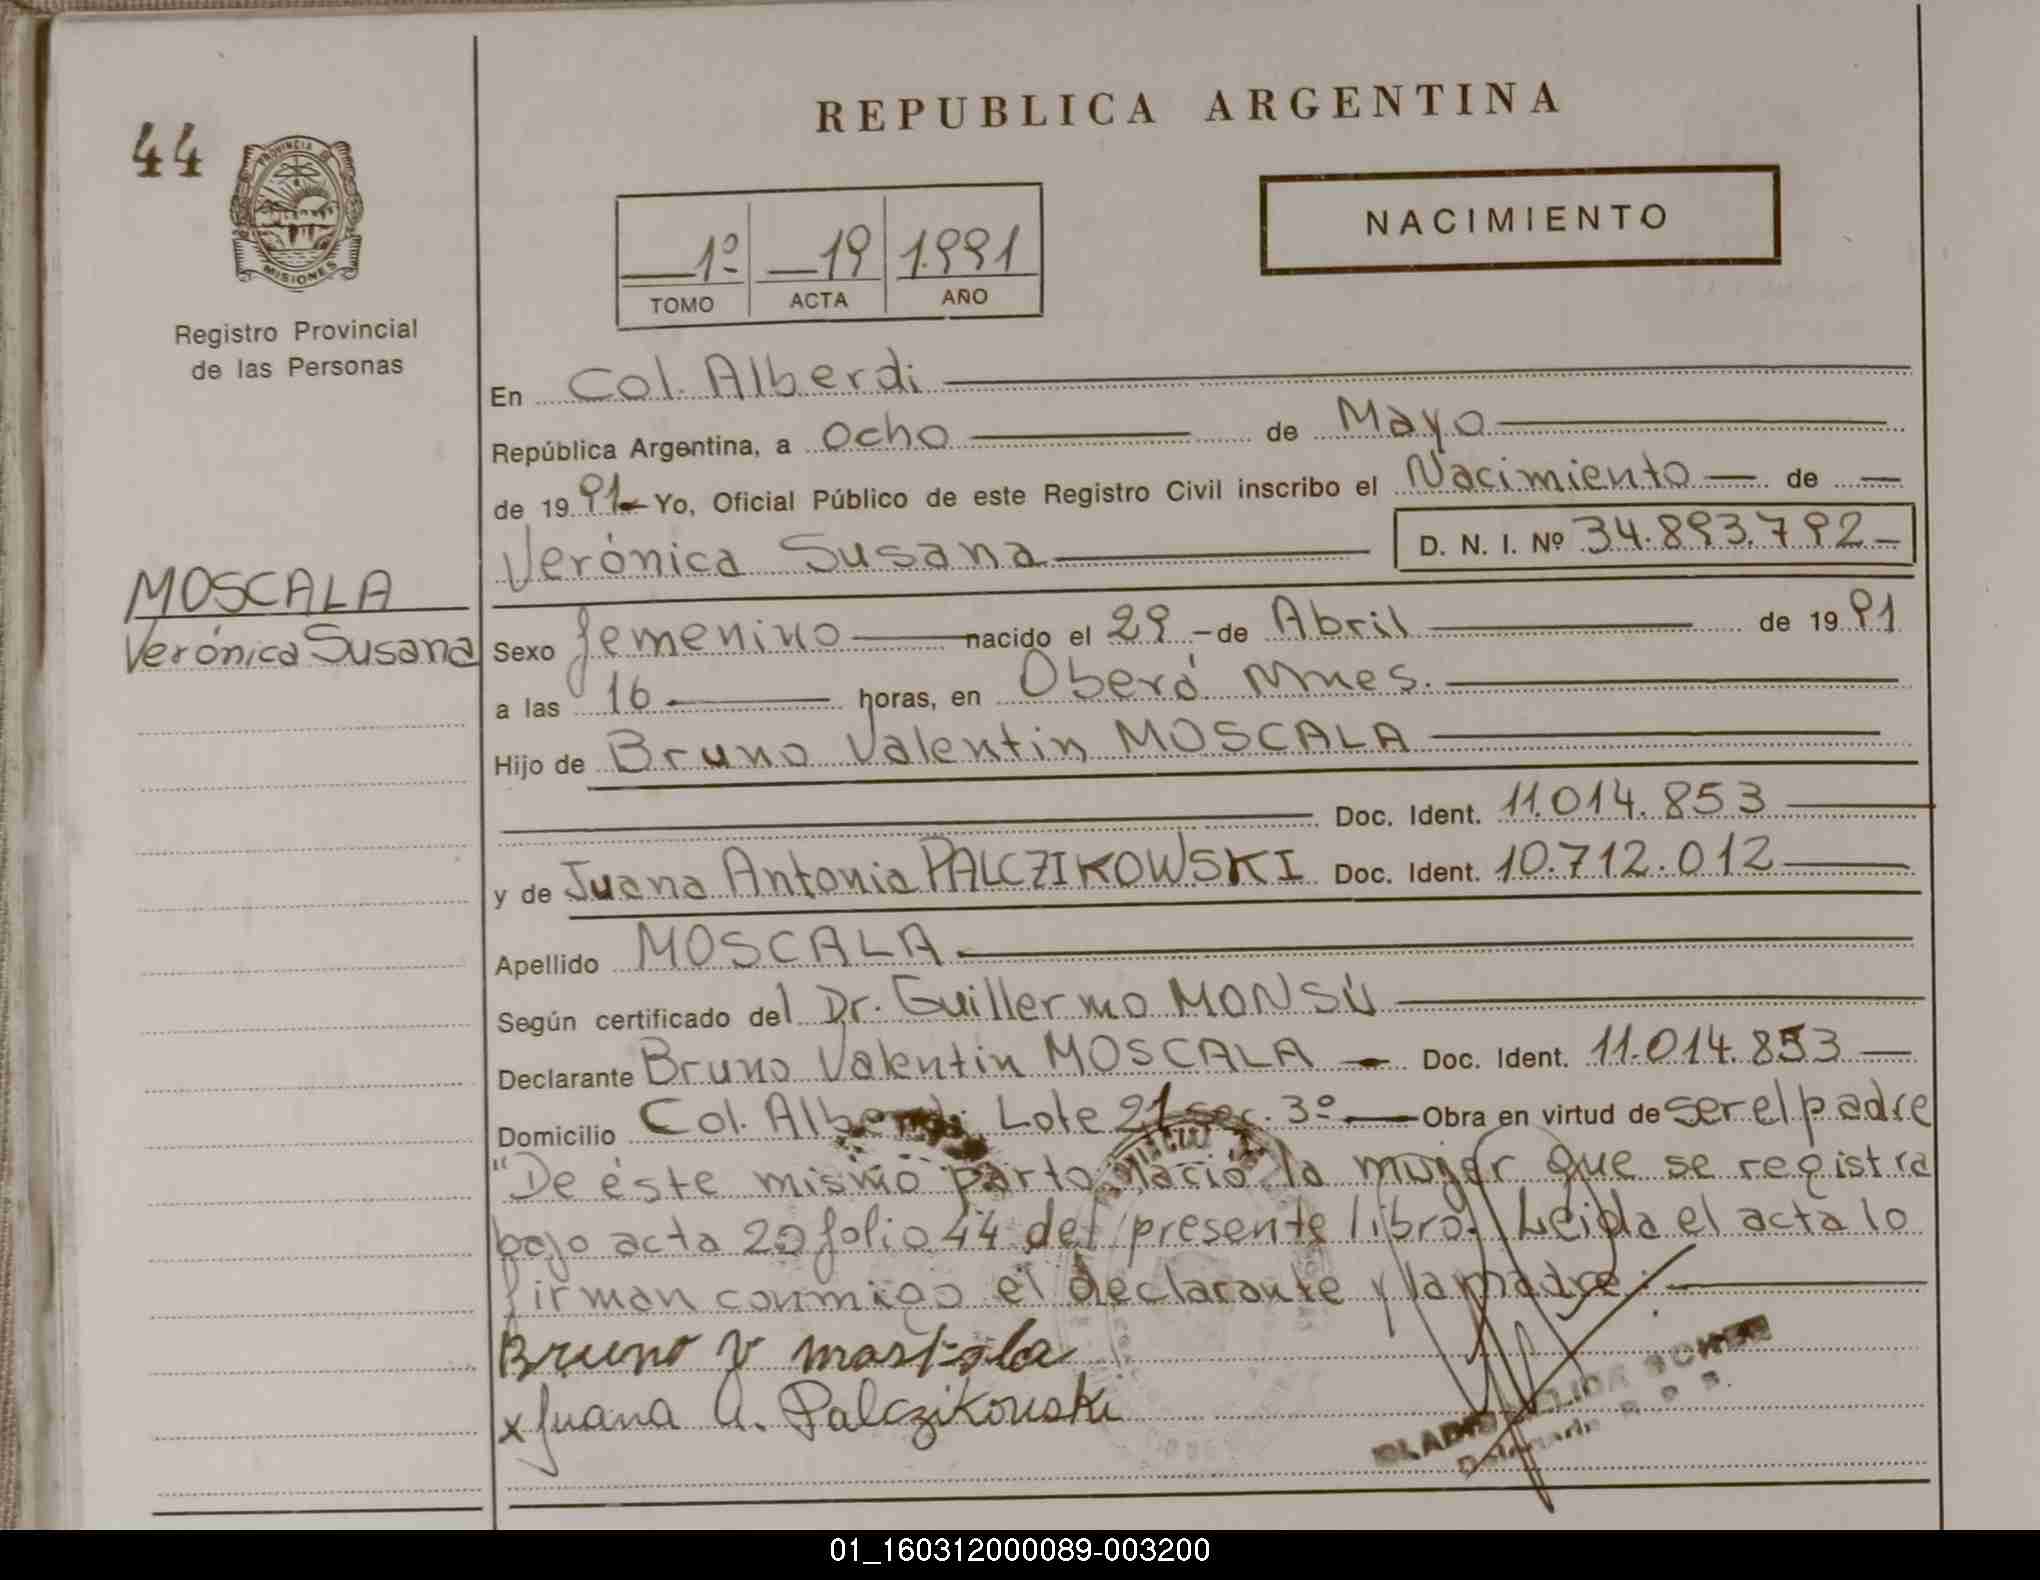 44
REPUBLICA ARGENTINA
PROVINCIA DE
MISIONES
Registro Provincial
de las Personas
1º 19 1.991
TOMO ACTA AÑO
NACIMIENTO
En Col. Alberdi
República Argentina, a ocho de Mayo
de 1991 Yo, Oficial Público de este Registro Civil inscribo el Nacimiento de
Verónica Susana D. N. I. Nº 34.893.792
MOSCALA
Verónica Susana
Sexo femenino nacido el 29 de Abril de 1991
a las 16 horas, en Oberá Mnes.
Hijo de Bruno Valentin MOSCALA
Doc. Ident. 11.014.853
y de Juana Antonia PALCZIKOWSKI Doc. Ident. 10.712.012
Apellido MOSCALA
Según certificado del Dr. Guillermo MONSÚ
Declarante Bruno Valentin MOSCALA Doc. Ident. 11.014.853
Domicilio Col. Alberdi Lote 21 sec. 3º Obra en virtud de ser el padre
"De éste mismo parto nació la mujer que se registra
bajo acta 20 folio 44 del presente libro. Leida el acta lo
firman conmigo el declarante y la madre.
Bruno V moskala
x Juana A. Palczikouski
01_160312000089-003200